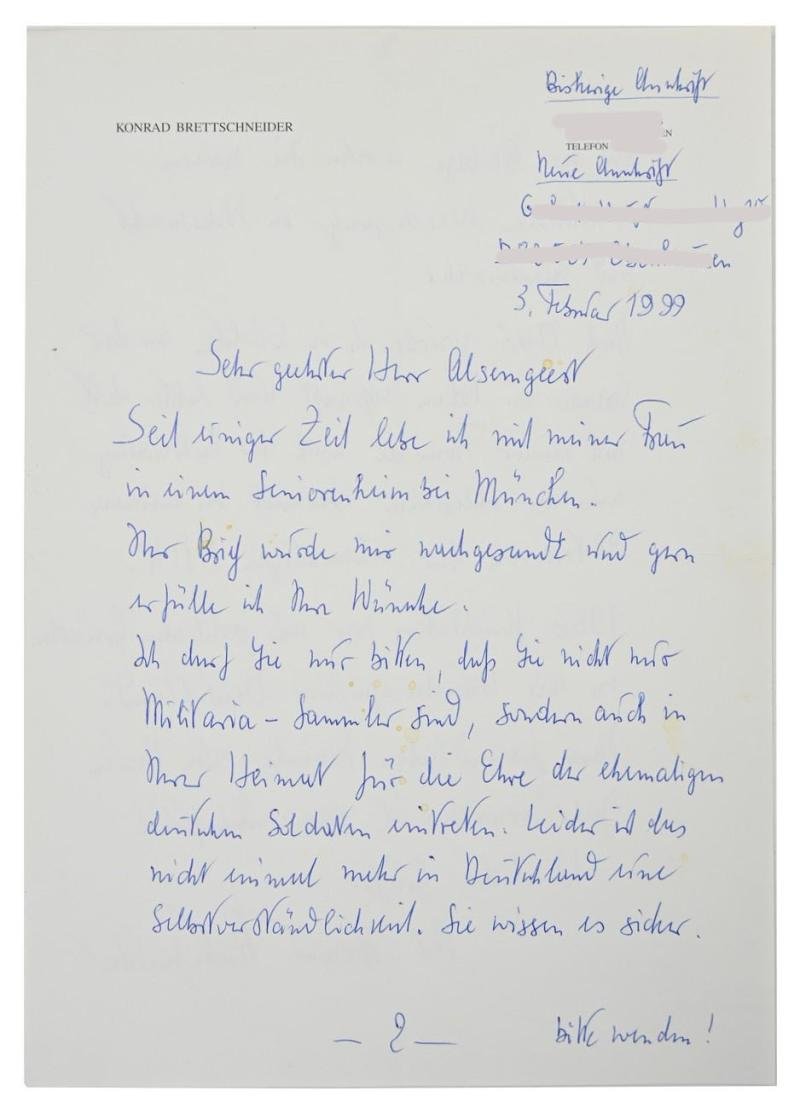 Bisherige Anschrift
KONRAD BRETTSCHNEIDER
TELEFON
Neue Anschrift
3. Februar 1999
Sehr geehrter Herr Alsemgeest
Seit einiger Zeit lebe ich mit meiner Frau
in einem Seniorenheim bei München.
Ihr Brief wurde mir nachgesandt und gern
erfülle ich Ihre Wünsche.
Ich darf Sie nur bitten, daß Sie nicht nur
Militaria - Sammler sind, sondern auch in
Ihrer Heimat für die Ehre der ehemaligen
deutschen Soldaten eintreten. Leider ist das
nicht einmal mehr in Deutschland eine
Selbstverständlichkeit. Sie wissen es sicher.
- 2 - bitte wenden!